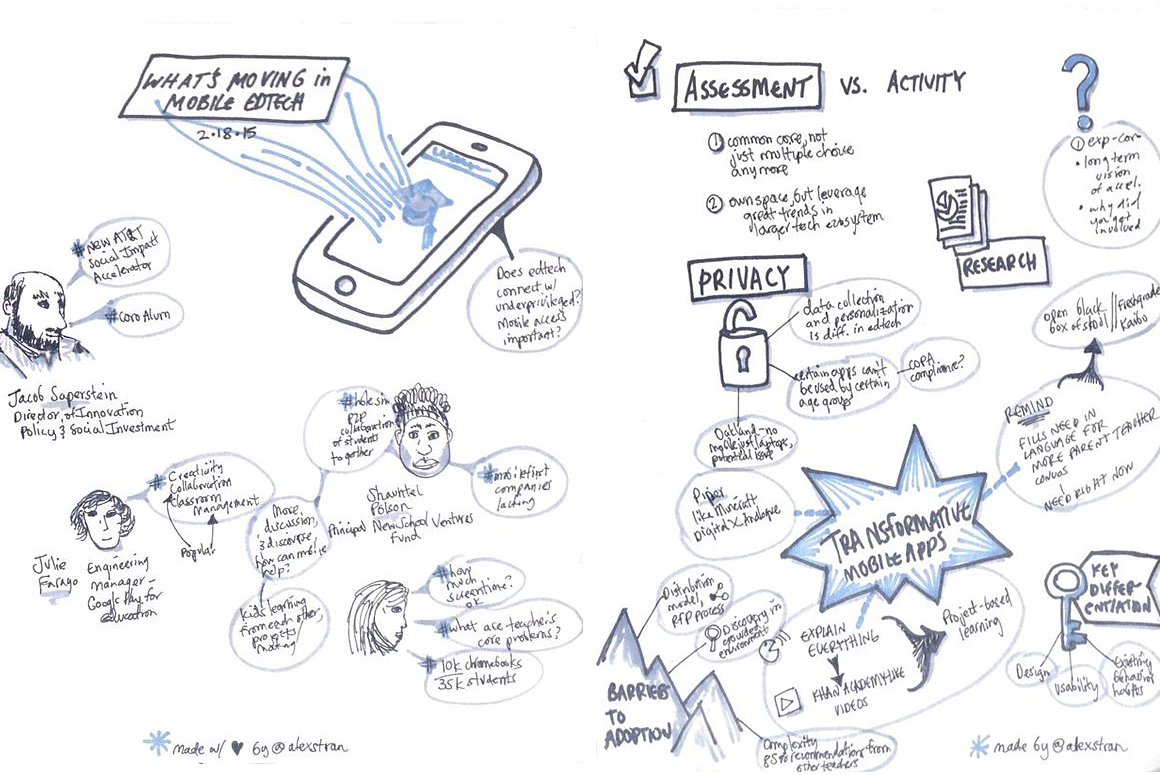 WHAT'S MOVING in
MOBILE EDTECH
2.18.15
#New AT&T
Social Impact
Accelerator
#Coro Alum
Jacob Saperstein
Director, of Innovation
Policy & Social Investment
Does edtech
connect w/
underprivileged?
Mobile access
important?
P2P
collaboration
of students
together
#mobile first
companies
lacking
Shauntel
Polson
Principal NewSchool Ventures
Fund
# Creativity
Collaboration
Classroom
management
Popular
Julie
Farago
Engineering
manager -
Google Play for
education
More
discussion,
& discourse
how can mobile
help?
kids learning
from each other,
projects
making
#how
much
screentime?
OK
#what are teacher's
core problems?
# 10k chromebooks
35k students
made w/ ♥ by @alexstran
ASSESSMENT VS. ACTIVITY
① common core, not
just multiple choice
anymore
② own space, but leverage
great trends in
larger tech ecosystem
?
① exp-cor-
• long term
vision
of accel.
• why did
you get
involved
RESEARCH
PRIVACY
data collection
and personalization
is diff. in edtech
certain apps can't
be used by certain
age groups
COPA
compliance?
Oakland-no
mobile just laptops,
potential issue
open black
box of
Freshgrade
REMIND
FILLS NEED IN
LANGUAGE FOR
MORE PARENT TEACHER
CONVOS
NEED RIGHT NOW
Piper
like Minecraft
Digital X Analogue
TRANSFORMATIVE
MOBILE APPS
Distribution
model,
RFP process
Discovery in
crowded
environment
EXPLAIN
EVERYTHING
KHAN ACADEMY LIKE
VIDEOS
Project-based
learning
KEY
DIFFER-
ENTIATION
Design
Usability
Existing
behavior
habits
BARRIERS
TO
ADOPTION
Complexity
recommendations from
other teachers
made by @alexstran